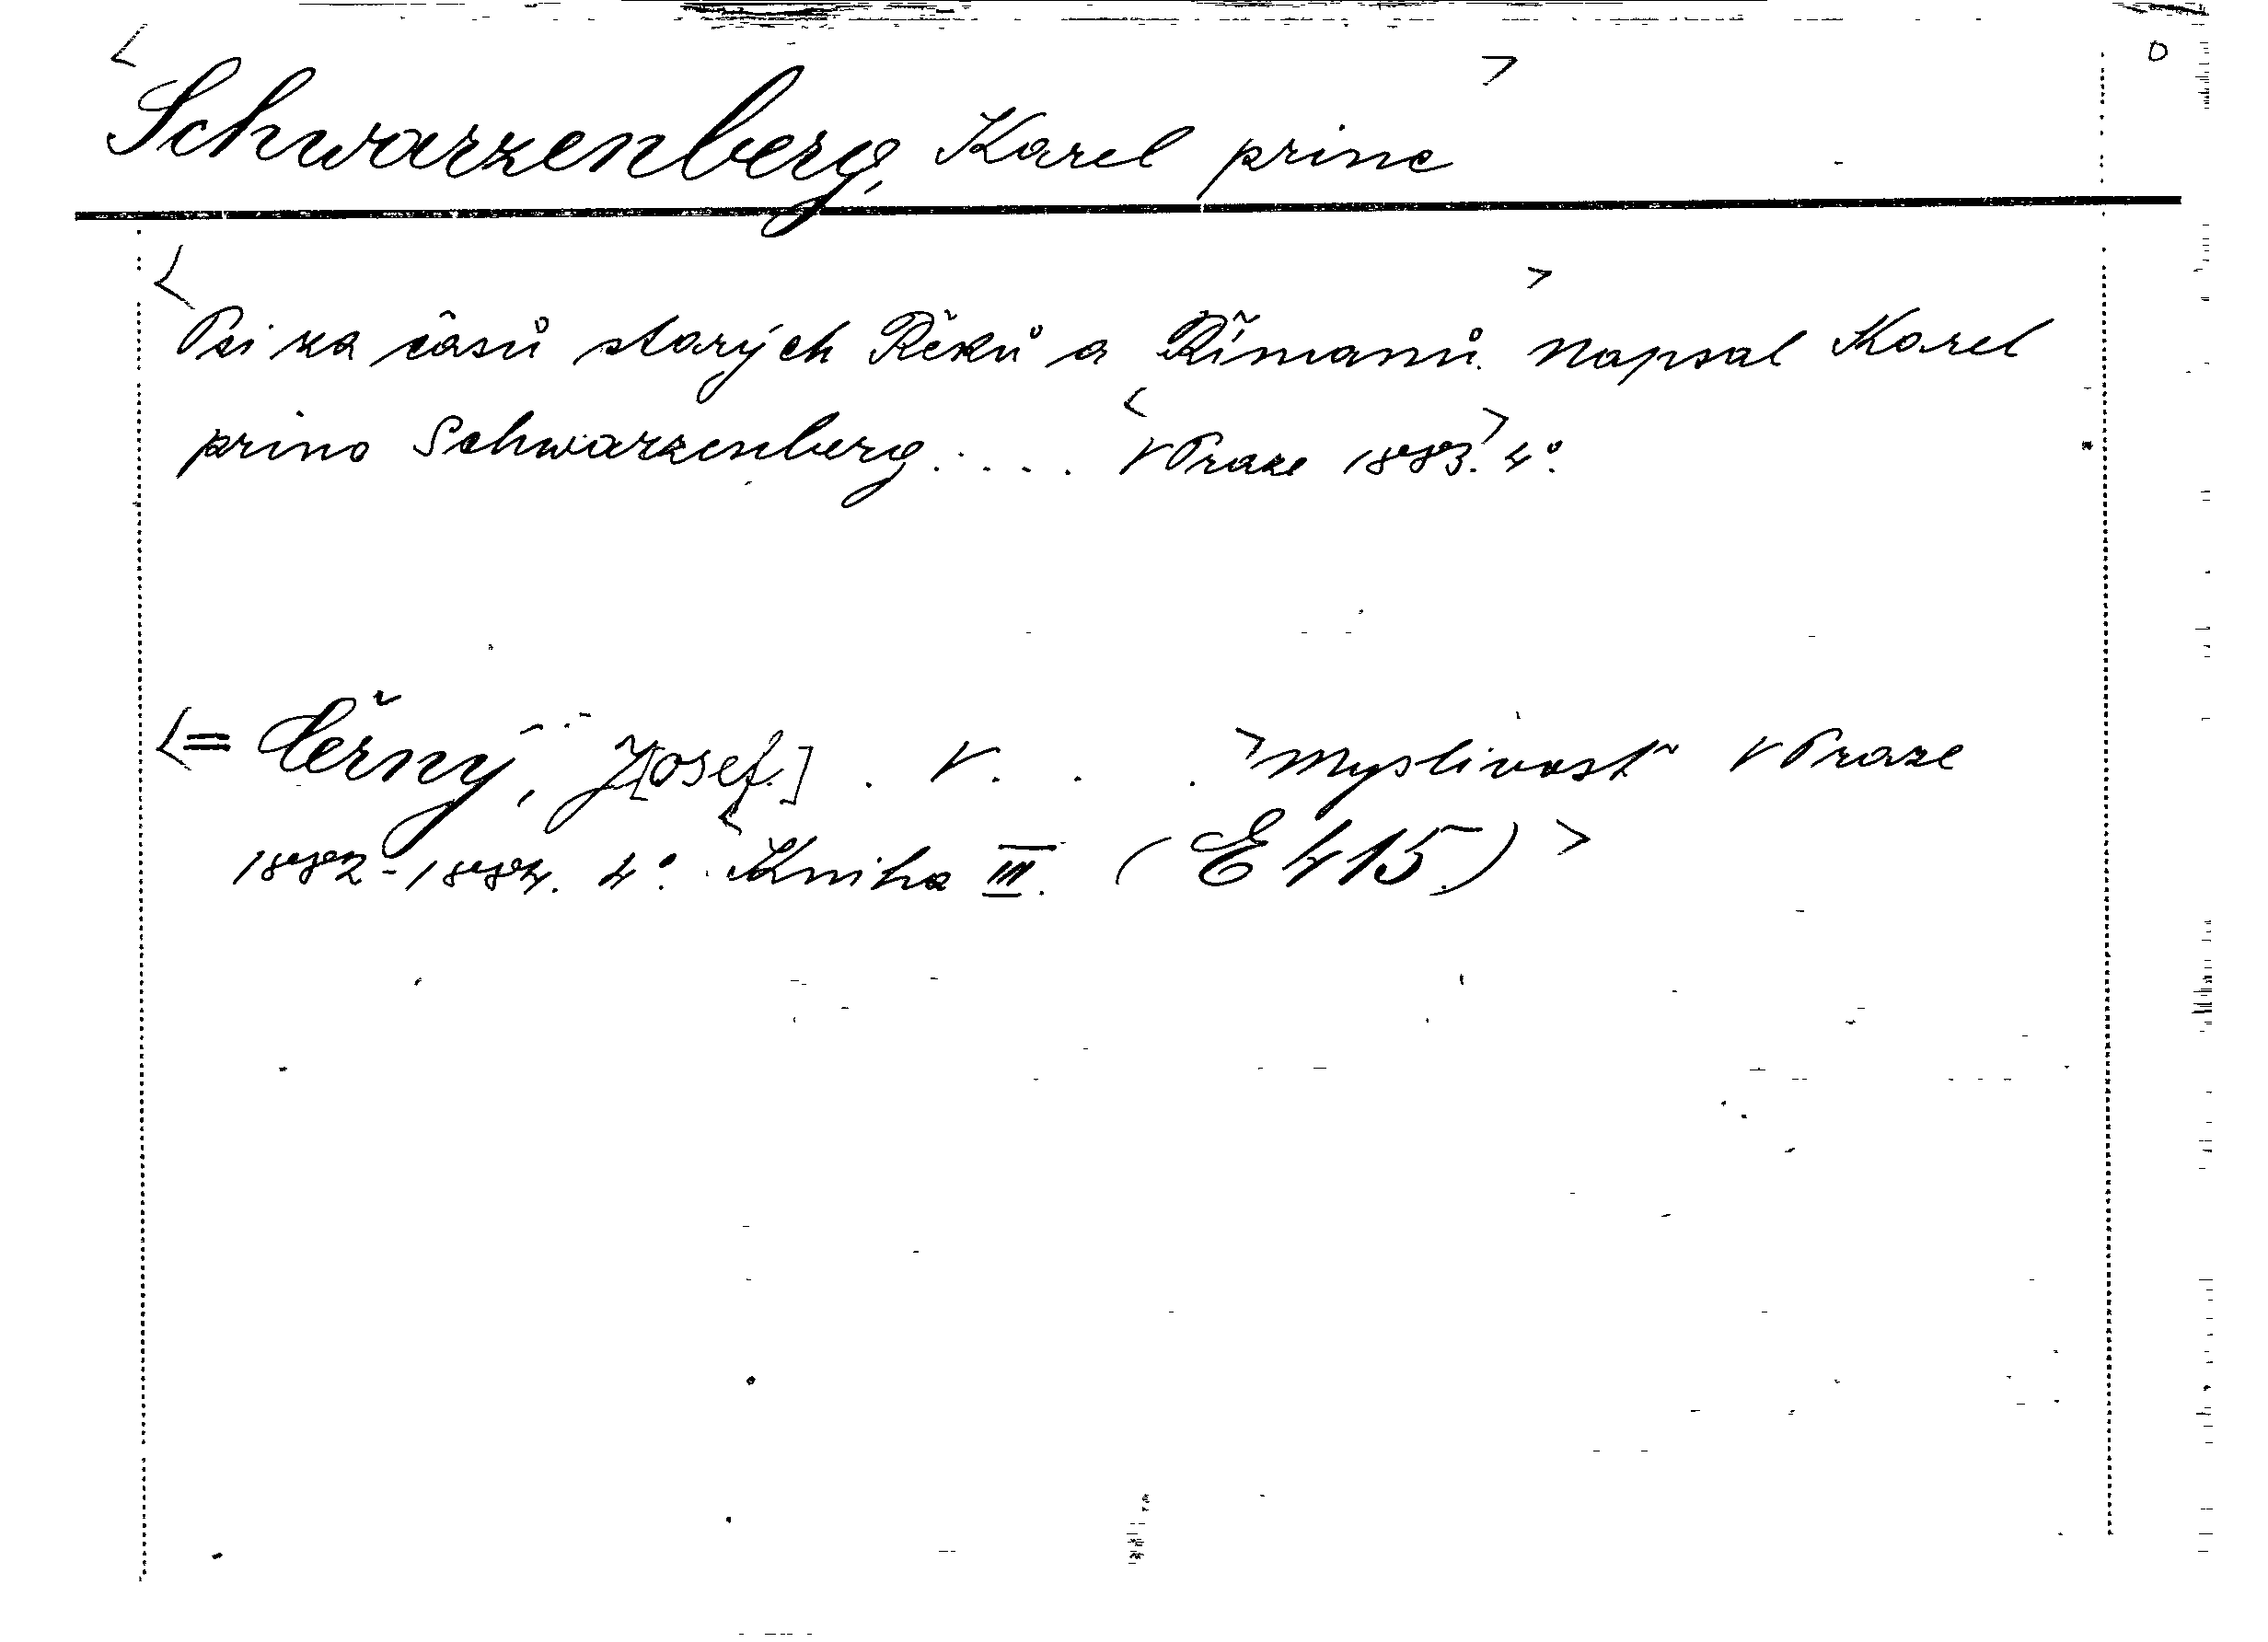 <Schwarzenberg, Karel princ>
<Psi za časů starých Řěků a Římanů.> Napsal Karel
princ Schwarzenberg..... <V Praze 1883.> 4°.
<= Černý, J[osef.] . V. . . >Myslivost" V Praze
1882-1884. 4°. <Kniha III. (E 415.)>